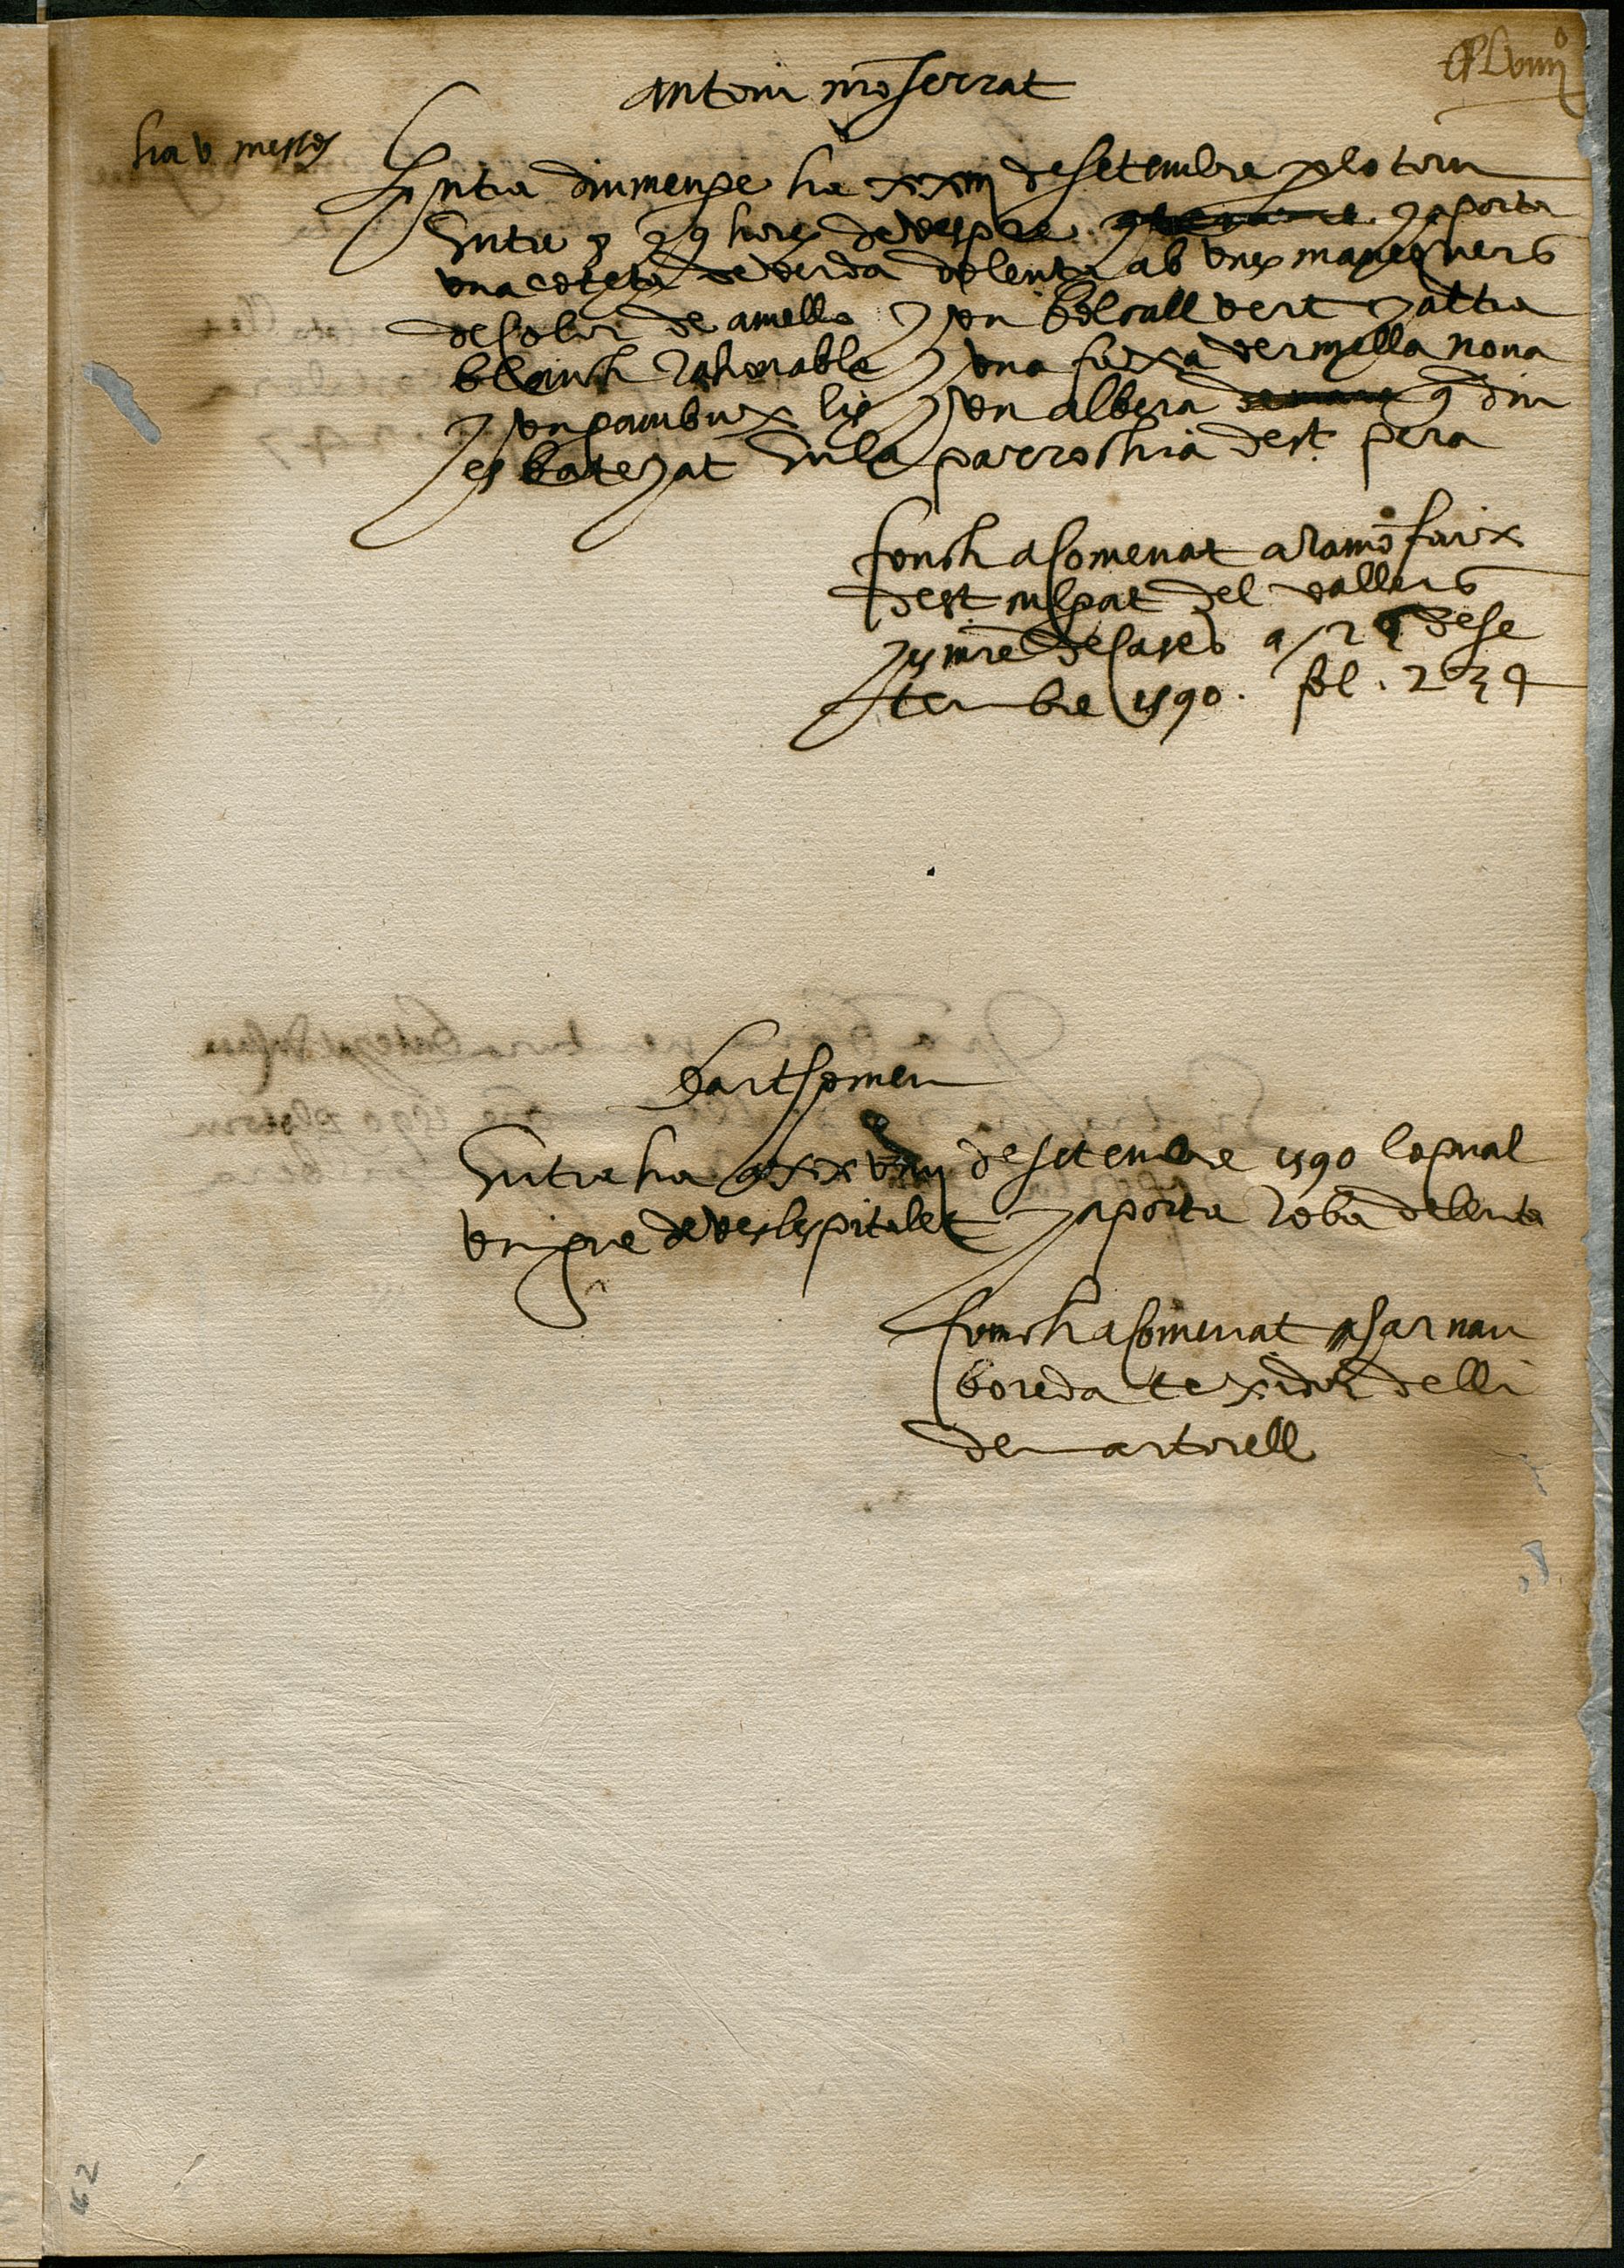 Lviiii
Antoni mõserrat
ha v messos
Entra diumenge ha xxiii de setembre p lo torn
Entre 8 y 9 hores de vespre y aporta
una coteta de verda dolenta ab unes manegues
de color de amella y un bolcall vert y altra
blanch rahonable y una faxa vermella nova
y un gambux lis y un albera q diu
es batejat en la parrochia de st pera
fonch acomenat a ramõ faix
de st culgat del valles
y es mre de cases a 29 de se
tembre 1590. fol. 234
bartSomeu
Entra ha xxviiii de setembre 1590 lo qual
vingue de ves lespitalet y aporta roba dolenta
fonch acomenat a arnau
boreda texidor de lli
de martorell
62